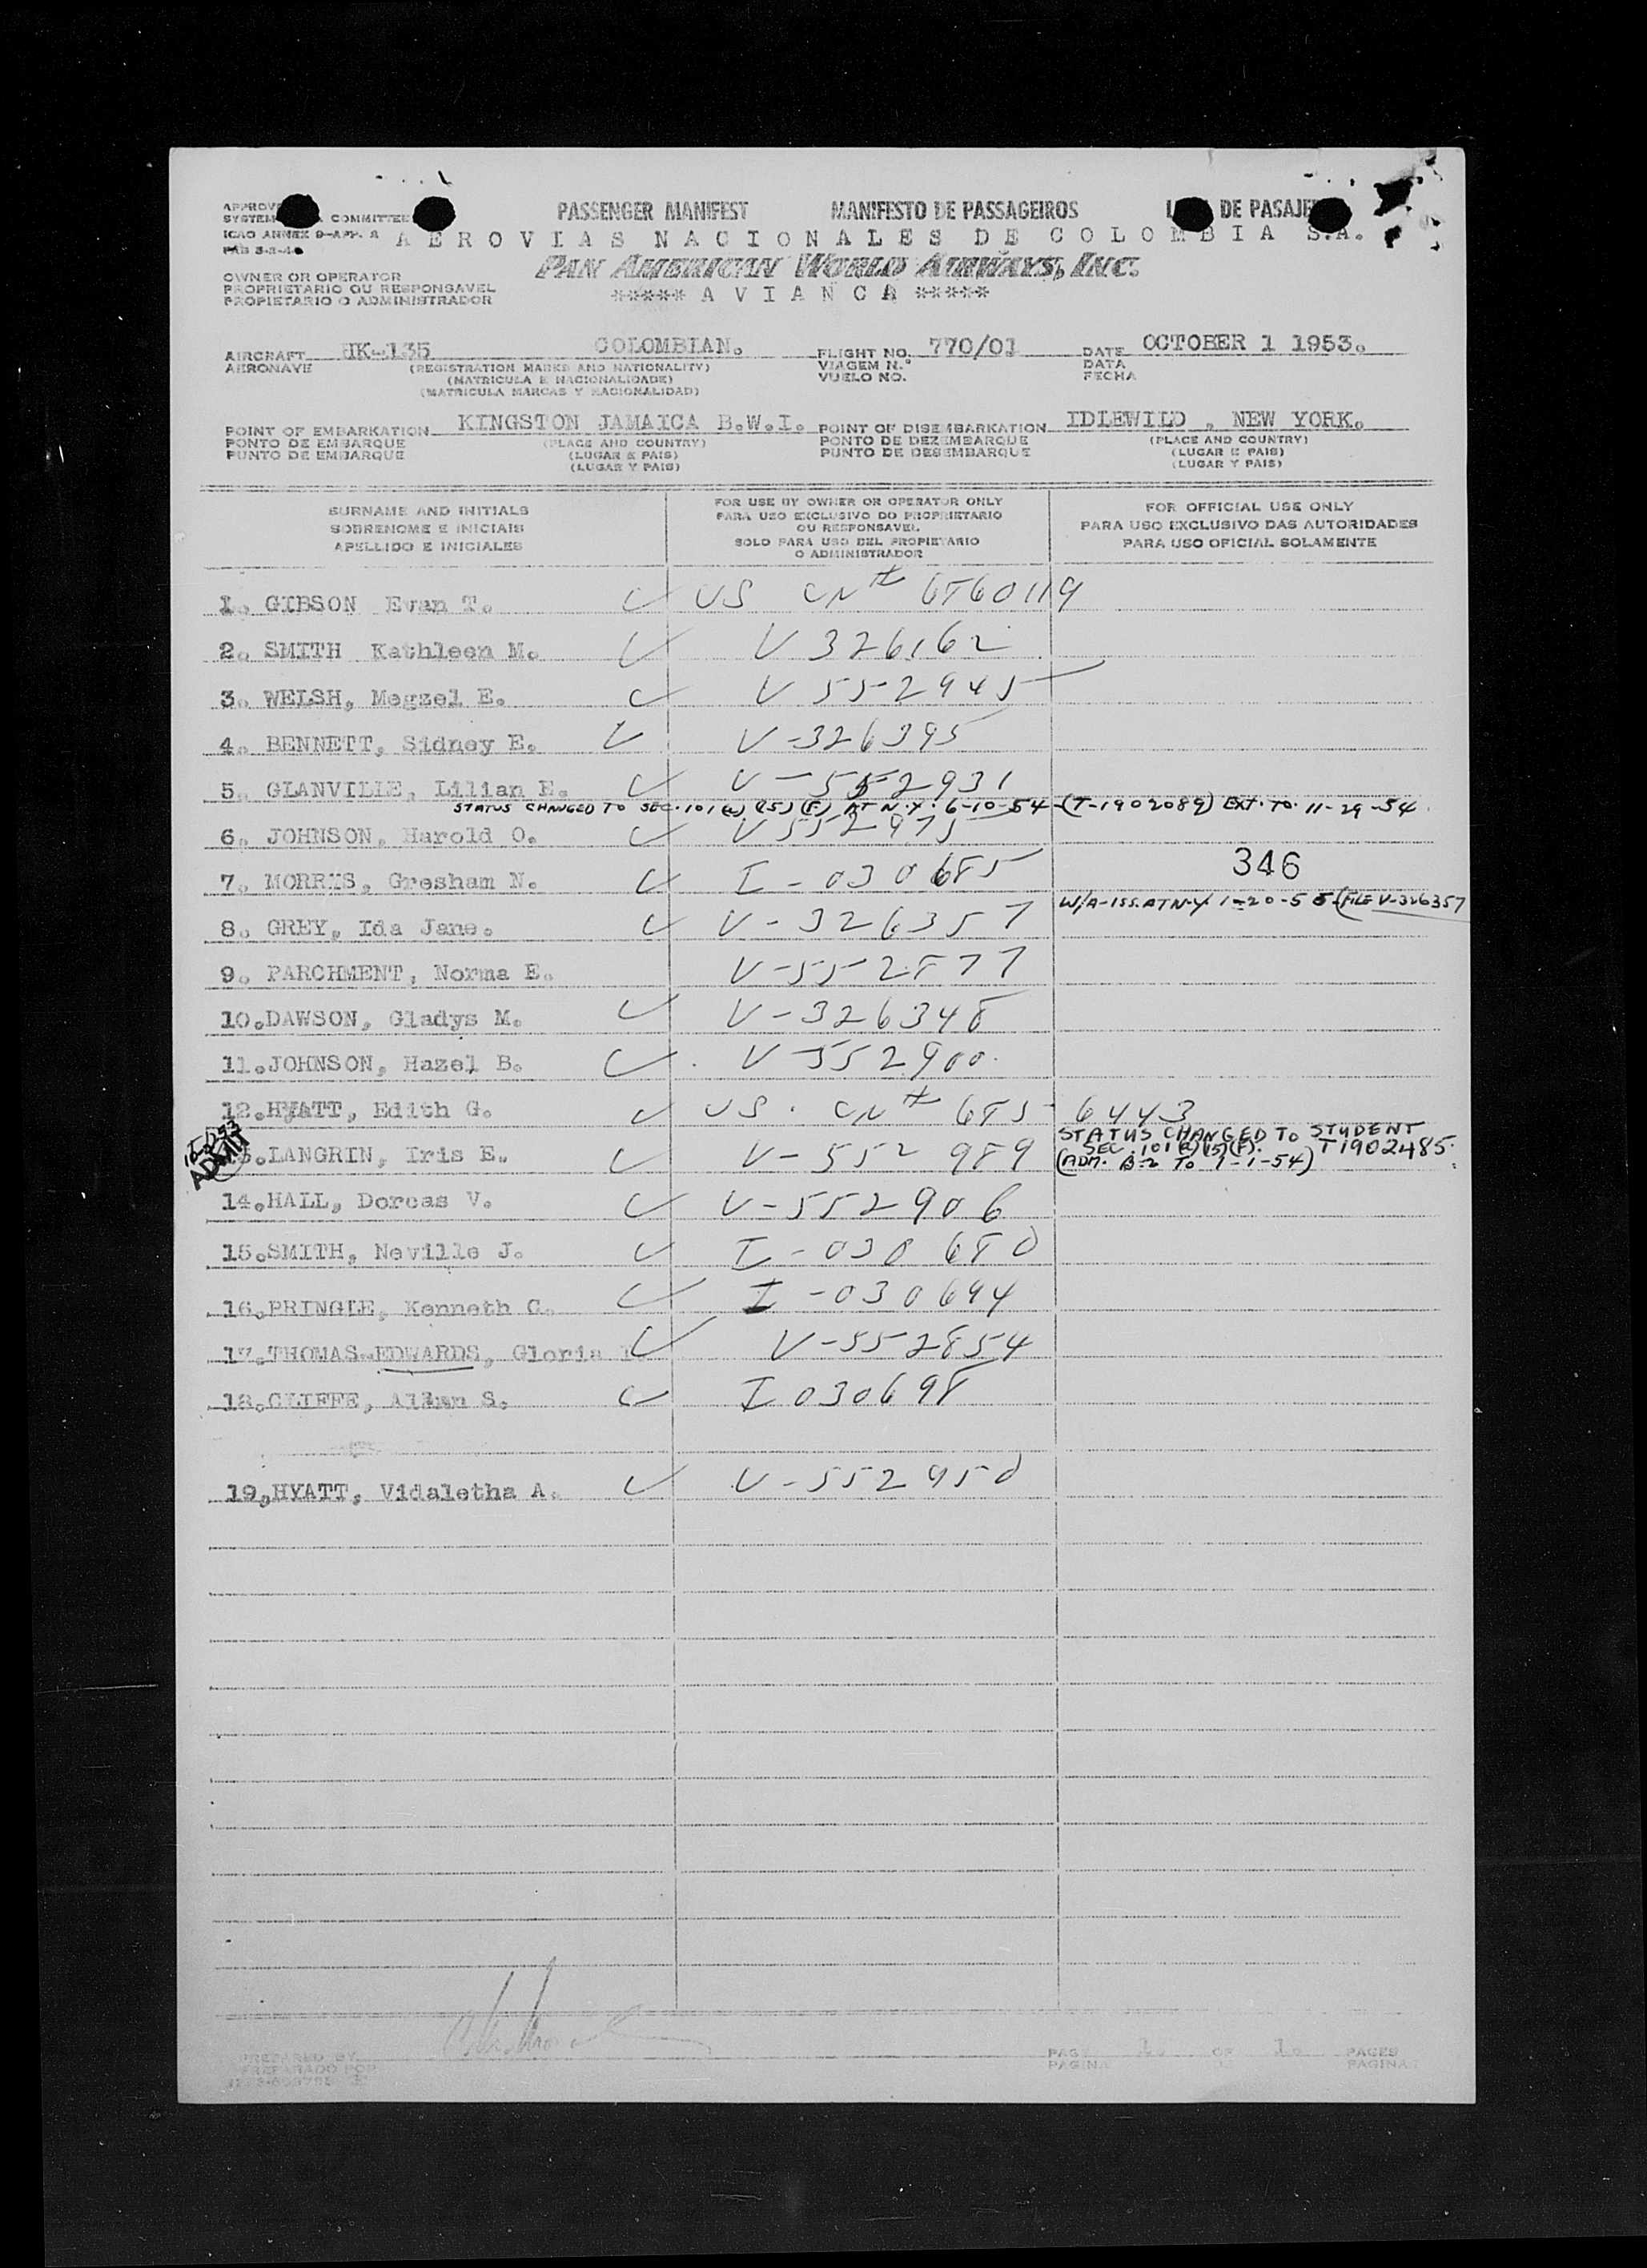 PASSENGER MANIFEST MANIFESTO DE PASSAGEIROS DE
SYSTEM COMMITTEE
ICAO ANNEX 9-APP. A
AEROVIAS NACIONALES DE COLOMBIA S.A.
PAN AMERICAN WORLD AIRWAYS, INC.
***** AVIANCA *****
OWNER OR OPERATOR
PROPRIETARIO OU RESPONSAVEL
PROPIETARIO O ADMINISTRADOR
AIRCRAFT HK-135 COLOMBIAN. FLIGHT NO. 770/01 DATE OCTOBER 1 1953.
AERONAVE (REGISTRATION MARKS AND NATIONALITY) VIAGEM N.º DATA
(MATRICULA E NACIONALIDADE) VUELO NO. FECHA
(MATRICULA MARCAS Y NACIONALIDAD)
POINT OF EMBARKATION KINGSTON JAMAICA B.W.I. POINT OF DISEMBARKATION IDLEWILD , NEW YORK.
PONTO DE EMBARQUE (PLACE AND COUNTRY) PONTO DE DEZEMBARQUE (PLACE AND COUNTRY)
PUNTO DE EMBARQUE (LUGAR E PAIS) PUNTO DE DESEMBARQUE (LUGAR E PAIS)
(LUGAR Y PAIS) (LUGAR Y PAIS)
SURNAME AND INITIALS
SOBRENOME E INICIAIS
APELLIDO E INICIALES
FOR USE BY OWNER OR OPERATOR ONLY
PARA USO EXCLUSIVO DO PROPRIETARIO
OU RESPONSAVEL
SOLO PARA USO DEL PROPIETARIO
O ADMINISTRADOR
FOR OFFICIAL USE ONLY
PARA USO EXCLUSIVO DAS AUTORIDADES
PARA USO OFICIAL SOLAMENTE
1. GIBSON Evan T. US CN# 6860119
2. SMITH Kathleen M. V 326162
3. WELSH, Megzel E. V 552945
4. BENNETT, Sidney E. V-326395
5. GLANVILLE, Lilian E. V-552931
STATUS CHANGED TO SEC. 101(a)(15)(F) AT N.Y. 6-10-54 (T-1902089) EXT. TO. 11-29-54
6. JOHNSON, Harold O. V552975
346
7. MORRIS, Gresham N. I-030685
W/A-ISS. AT N.Y 1-20-55 (FILE V-326357
8. GREY, Ida Jane. V-326357
9. PARCHMENT, Norma E. V-552877
10. DAWSON, Gladys M. V-326348
11. JOHNSON, Hazel B. V-552900.
12. HYATT, Edith G. US. CN# 685 6443
ADMIT
13. LANGRIN, Iris E. V-552989
STATUS CHANGED TO STUDENT
SEC. 101(a)(15)(F). T1902485.
(ADM. B-2 TO 1-1-54)
14. HALL, Dorcas V. V-552906
15. SMITH, Neville J. I-030680
16. PRINGLE, Kenneth C. I-030694
17. THOMAS-EDWARDS, Gloria V-552854
18. CLIFFE, S. I 030698
19. HYATT, Vidaletha A. V-552950
PREPARED BY
PREPARADO POR
PAGE 1. OF 1. PAGES
PAGINA PAGINAS